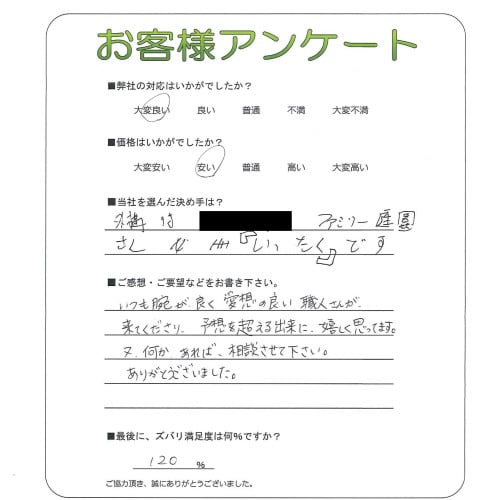 お客様アンケート
■弊社の対応はいかがでしたか？
大変良い 良い 普通 不満 大変不満
■価格はいかがでしたか？
大変安い 安い 普通 高い 大変高い
■当社を選んだ決め手は？
外構は ファミリー庭園
さんが 『いったく』です
■ご感想・ご要望などをお書き下さい。
いつも腕が良く愛想の良い職人さんが、
来てくださり、予想を超える出来に、嬉しく思ってます。
又、何かあれば、相談させて下さい。
ありがとうございました。
■最後に、ズバリ満足度は何％ですか？
120 ％
ご協力頂き、誠にありがとうございました。